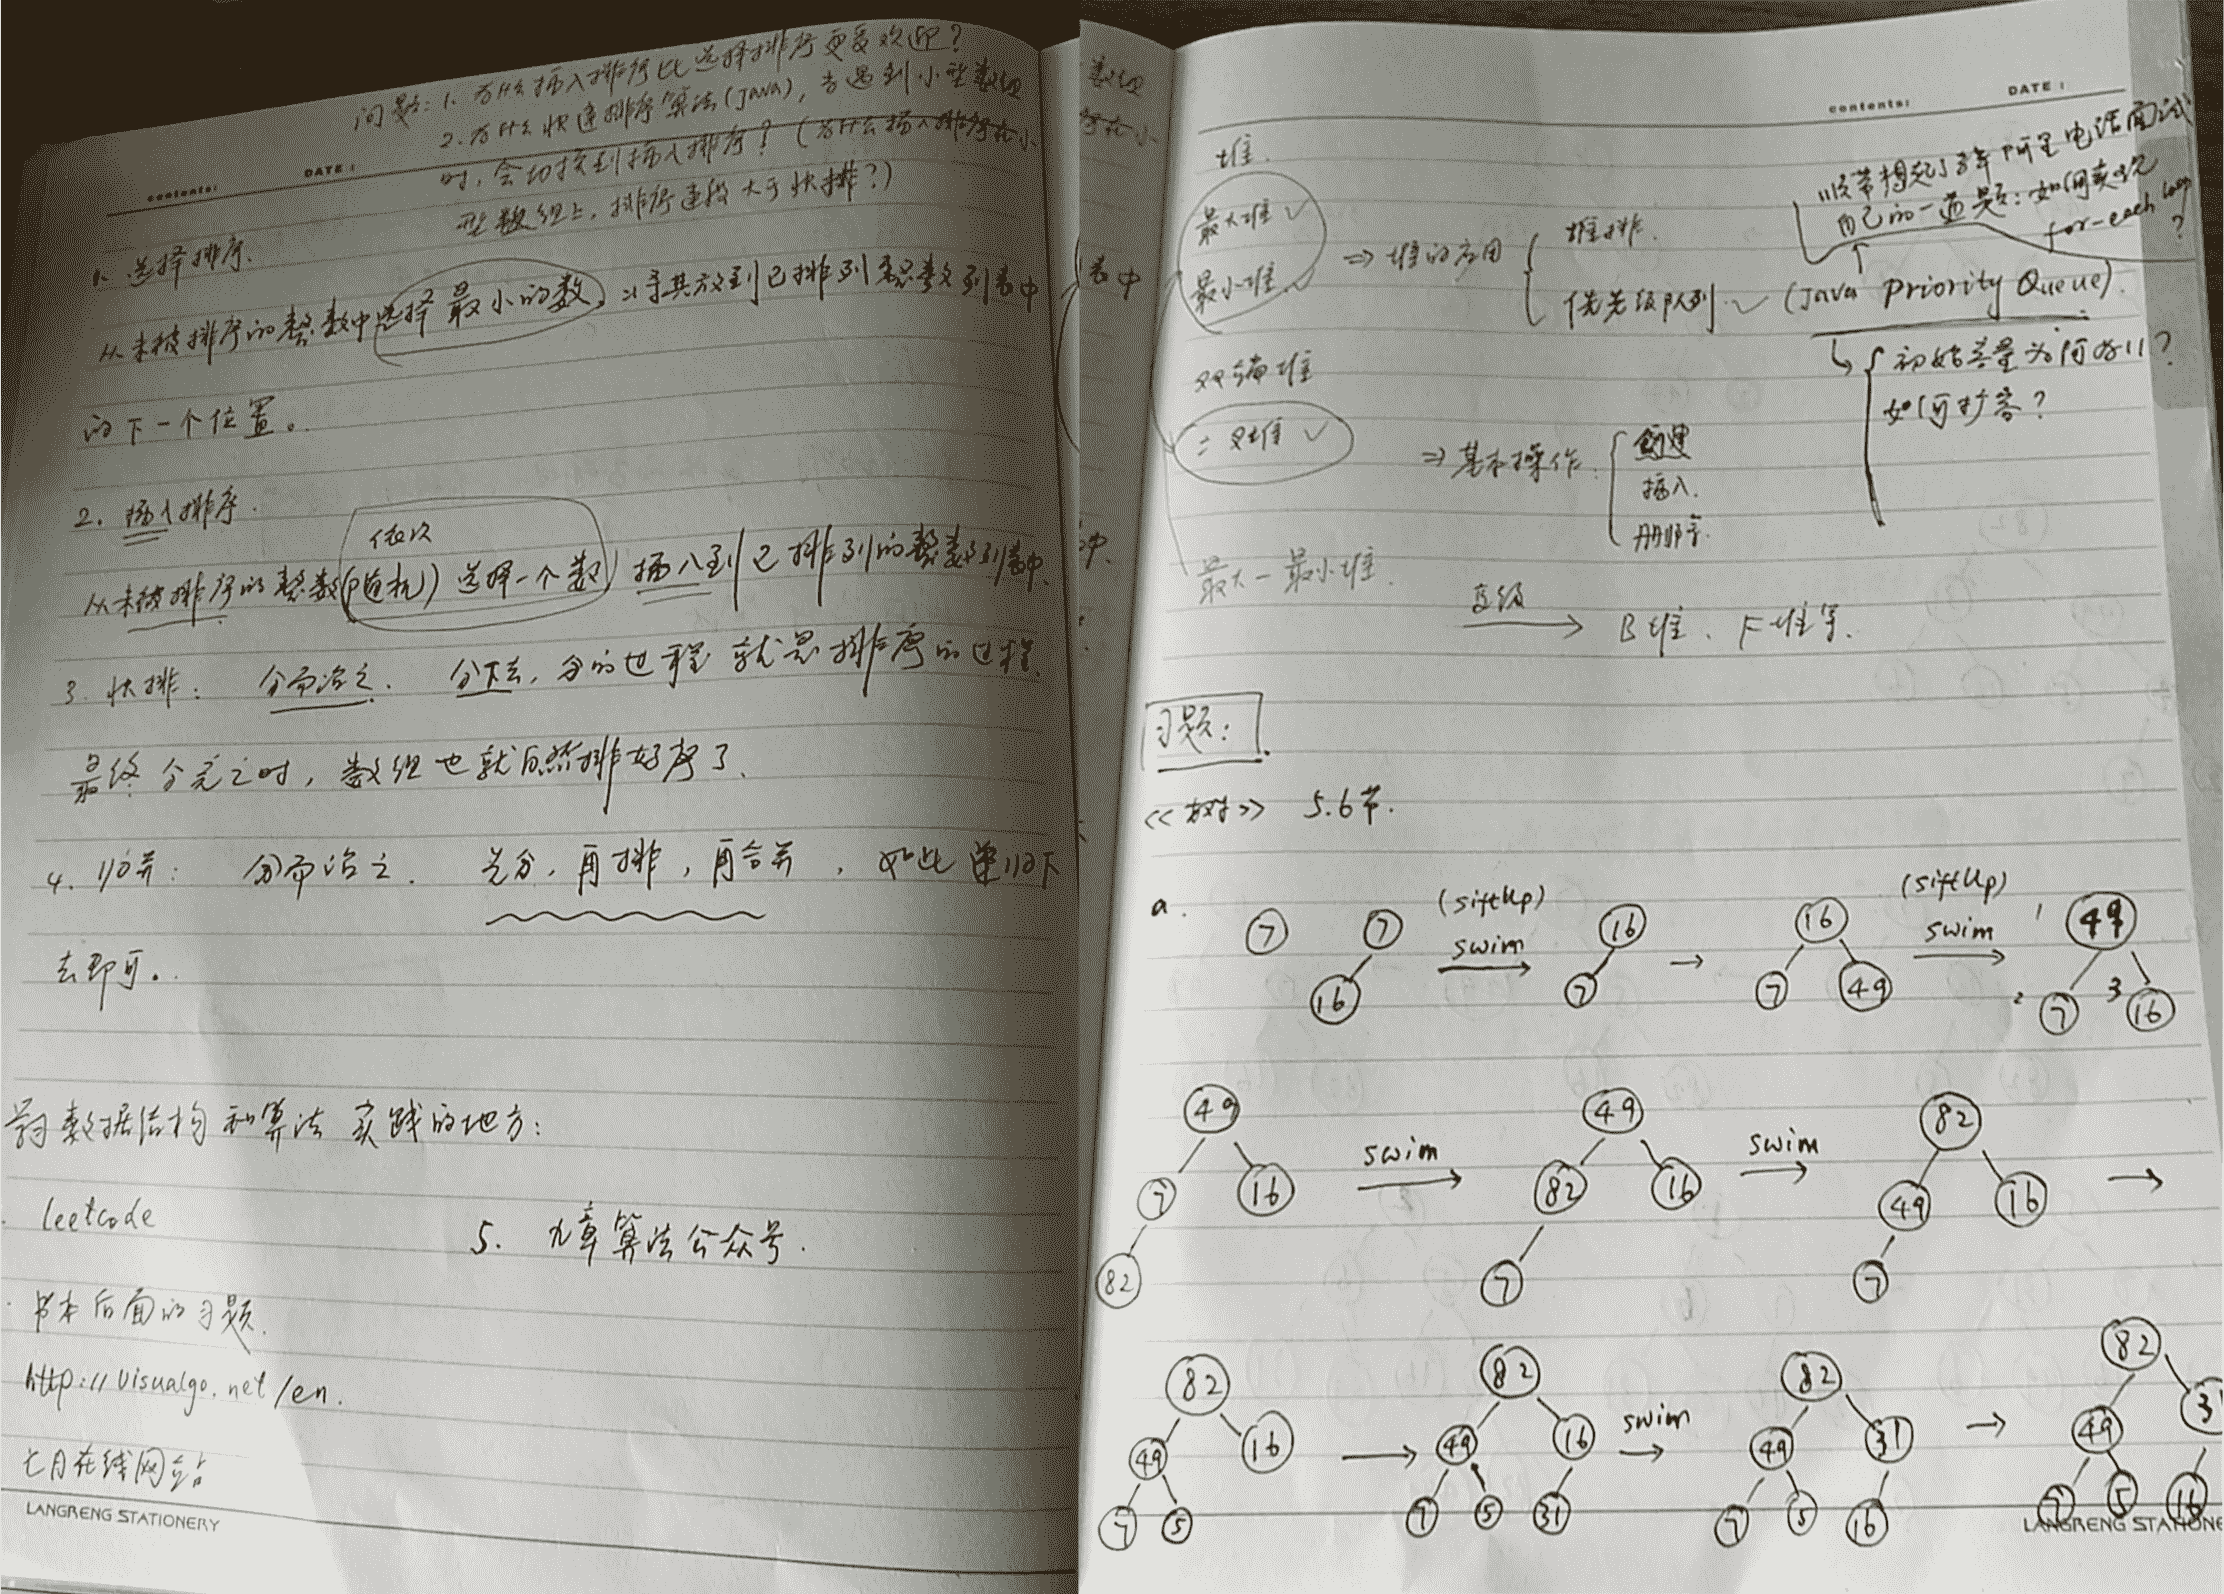 问题: 1. 为什么插入排序比选择排序更受欢迎?
2. 为什么快速排序算法(java), 当遇到小型数组
时, 会切换到插入排序? (为什么插入排序在小
型数组上, 排序速度大于快排?)
contents: DATE:
1. 选择排序.
从未被排序的整数中选择最小的数, 将其放到已排列整数列表中
的下一个位置。
2. 插入排序.
依次
从未被排序的整数(随机)选择一个数 插入到已排列的整数列表中.
3. 快排: 分而治之. 分下去, 分的过程就是排序的过程.
最终分完之时, 数组也就自然排好序了.
4. 归并: 分而治之. 先分, 再排, 再合并, 如此递归下
去即可。
数据结构和算法实践的地方:
leetcode
5. 九章算法公众号.
书本后面的习题.
http://visualgo.net/en.
七月在线网站
LANGRENG STATIONERY
数组
在小
表中
中.
contents: DATE:
堆.
顺带想起了 年阿里电话面试
自己的一道题: 如何实现
for-each loop
?
最大堆 ✓
最小堆 ✓
⇒ 堆的应用 { 堆排.
优先级队列 ✓ (Java Priority Queue).
初始容量为何为11?
如何扩容?
双端堆
二叉堆 ✓
⇒ 基本操作. { 创建
插入.
删除.
最大-最小堆.
高级
→ B堆、F堆等.
习题:
<<树>> 5.6节.
a. 7 7 16 (siftUp) swim → 16 7 → 16 7 49 (siftUp) swim → 1 49 2 7 3 16
49 7 16 82 swim → 49 82 16 7 swim → 82 49 16 7 →
82 49 16 7 5 → 82 49 16 7 5 31 swim → 82 49 31 7 5 16 → 82 49 31 7 5 16
LANGRENG STATIONE